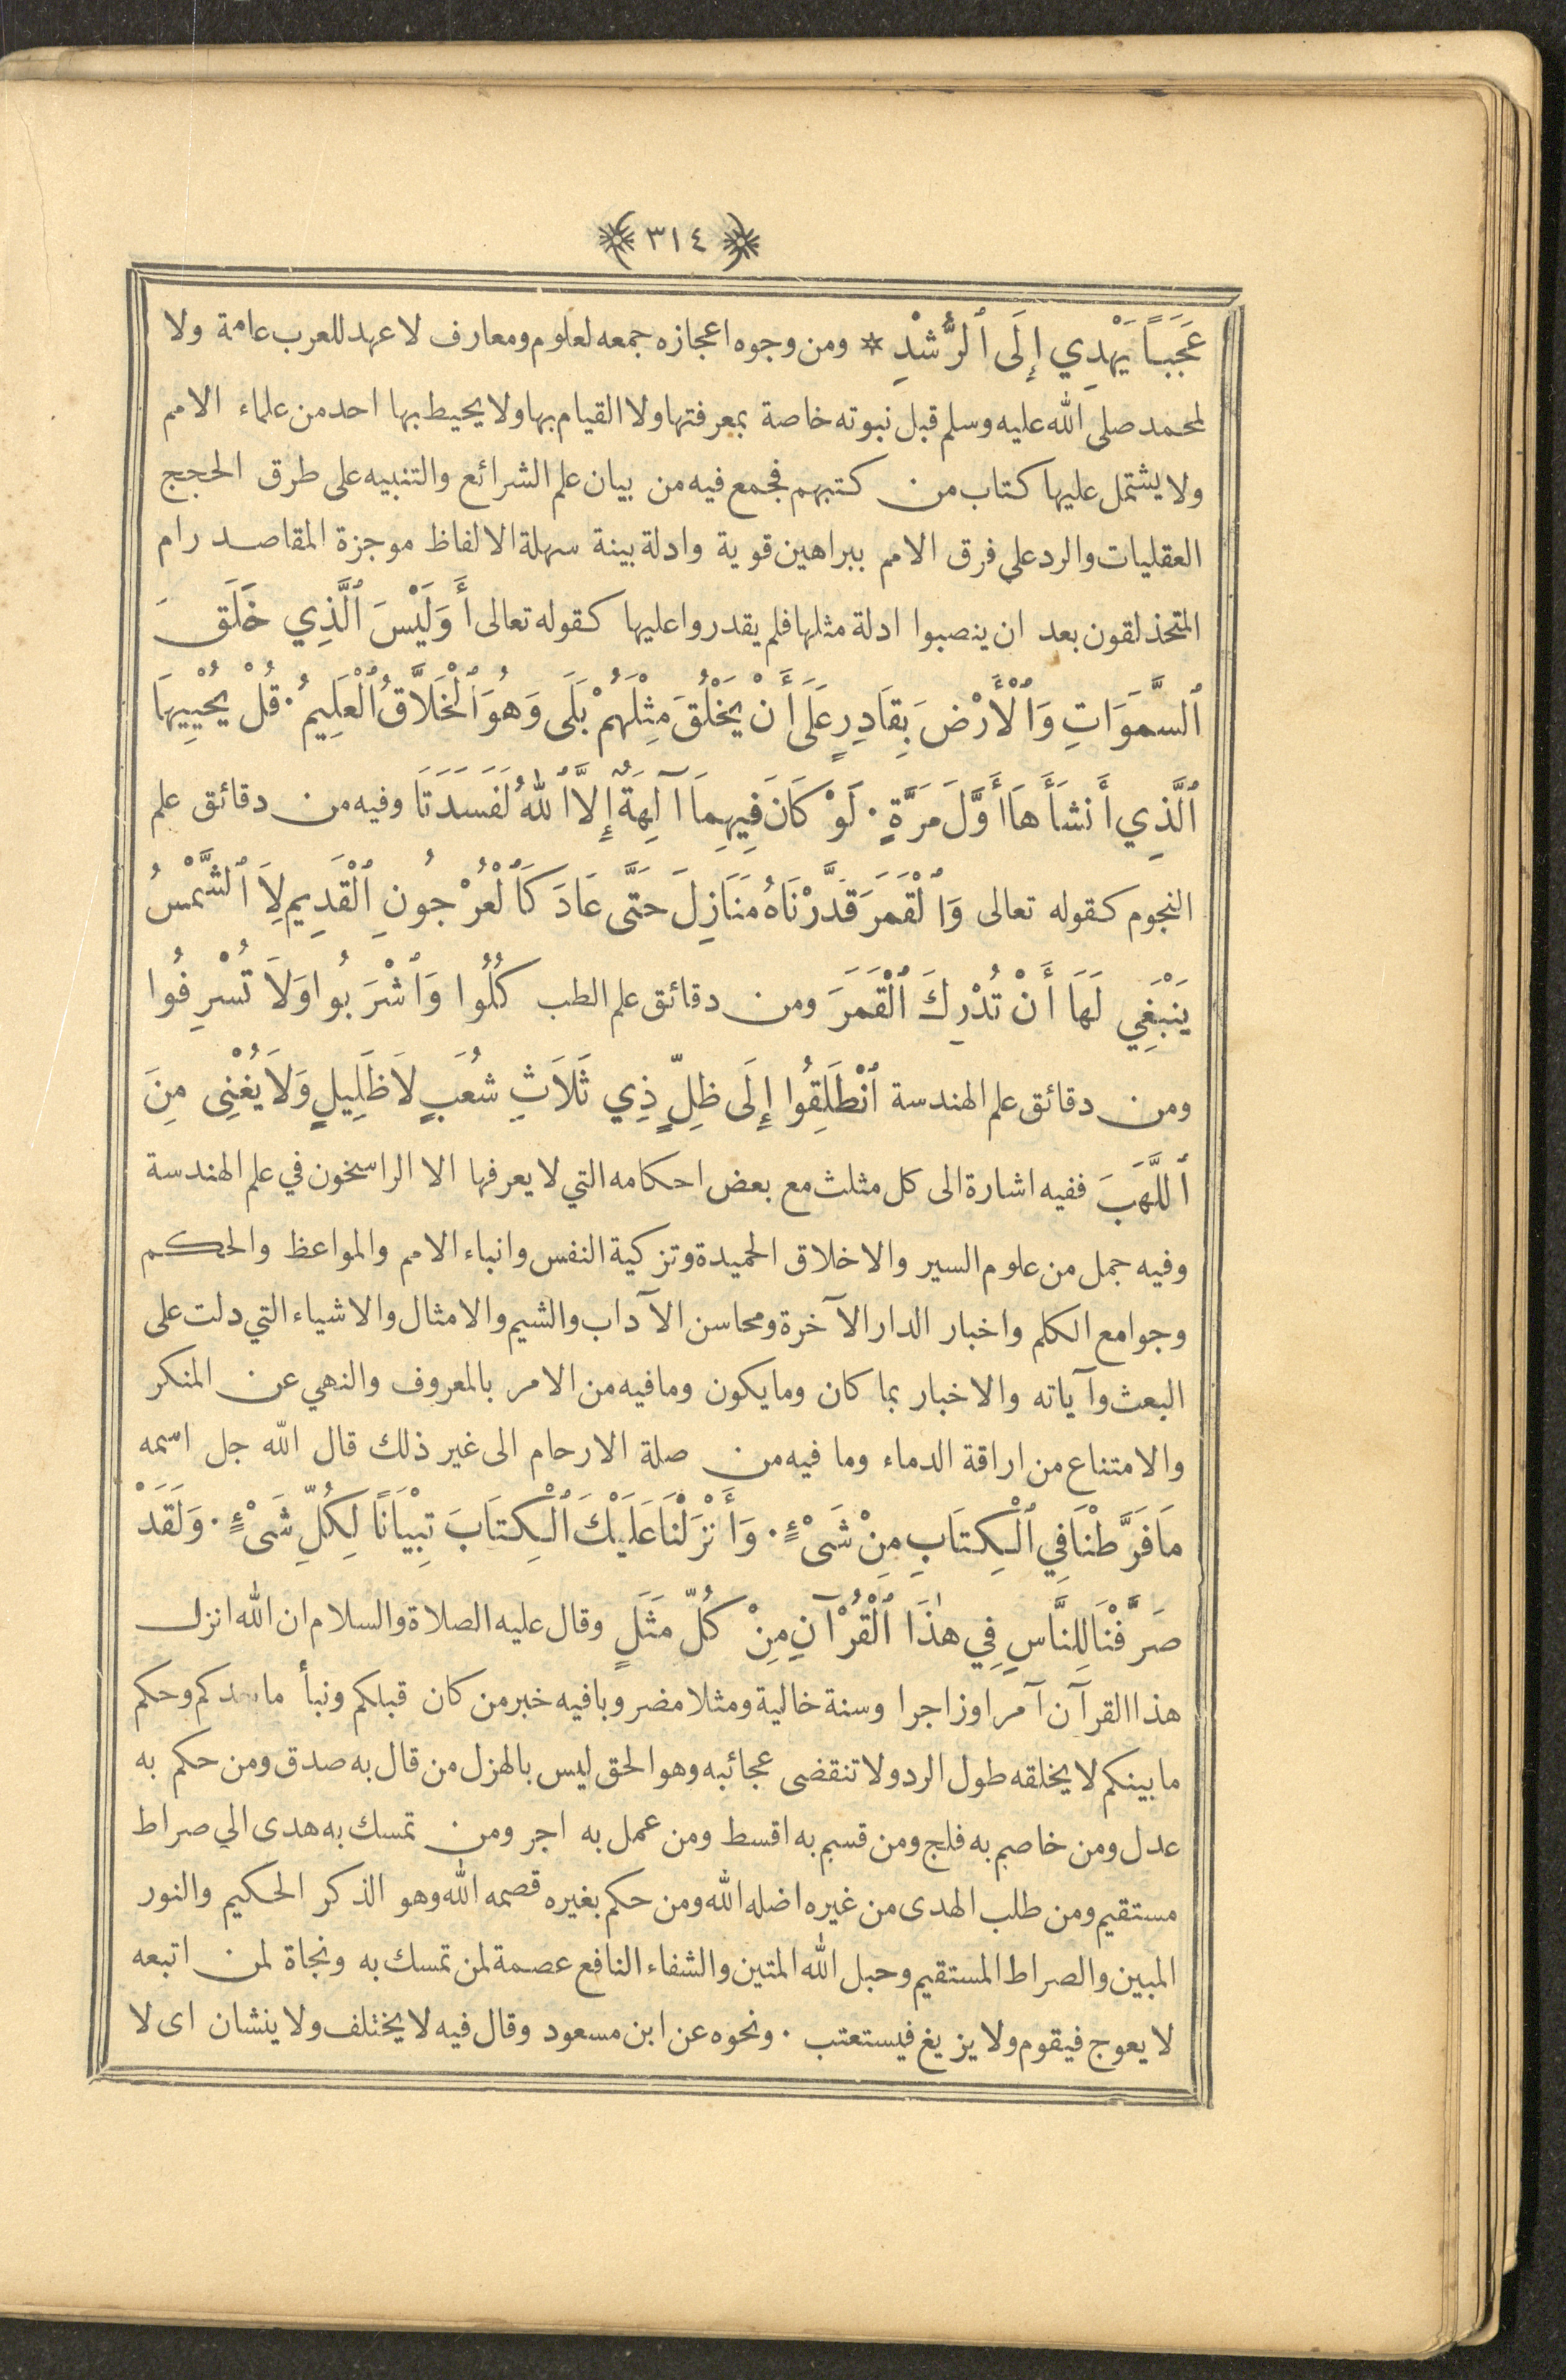 ٣١٤
عَجَبًا يَهْدِي إِلَى ٱلرُّشْدِ * ومن وجوه اعجازه جمعه لعلوم ومعارف لا عهد للعرب عامة ولا
لمحمد صلى الله عليه وسلم قبل نبوته خاصة بمعرفتها ولا القيام بها ولا يحيط بها احد من علماء الامم
ولا يشتمل عليها كتاب من كتبهم فجمع فيه من بيان علم الشرائع والتنبيه على طرق الحجج
العقليات والرد على فرق الامم ببراهين قوية وادلة بينة سهلة الالفاظ موجزة المقاصد رام
المتحذلقون بعد ان ينصبوا ادلة مثلها فلم يقدروا عليها كقوله تعالى أَوَلَيْسَ ٱلَّذِي خَلَقَ
ٱلسَّمَوَاتِ وَٱلْأَرْضَ بِقَادِرٍ عَلَى أَنْ يَخْلُقَ مِثْلَهُمْ بَلَى وَهُوَ ٱلْخَلَّاقُ ٱلْعَلِيمُ . قُلْ يُحْيِيهَا
ٱلَّذِي أَنشَأَهَا أَوَّلَ مَرَّةٍ . لَوْ كَانَ فِيهِمَا آلِهَةٌ إِلاَّ ٱللهُ لَفَسَدَتَا وفيه من دقائق علم
النجوم كقوله تعالى وَٱلْقَمَرَ قَدَّرْنَاهُ مَنَازِلَ حَتَّى عَادَ كَٱلْعُرْجُونِ ٱلْقَدِيمِ لاَ ٱلشَّمْسُ
يَنْبَغِي لَهَا أَنْ تُدْرِكَ ٱلْقَمَرَ ومن دقائق علم الطب كُلُوا وَٱشْرَبُوا وَلاَ تُسْرِفُوا
ومن دقائق علم الهندسة ٱنْطَلِقُوا إِلَى ظِلٍّ ذِي ثَلاَثِ شُعَبٍ لاَ ظَلِيلٍ وَلاَ يُغْنِى مِنَ
ٱللَّهَبَ ففيه اشارة الى كل مثلث مع بعض احكامه التي لا يعرفها الا الراسخون في علم الهندسة
وفيه جمل من علوم السير والاخلاق الحميدة وتزكية النفس وانباء الامم والمواعظ والحكم
وجوامع الكلم واخبار الدار الآخرة ومحاسن الآداب والشيم والامثال والاشياء التي دلت على
البعث وآياته والاخبار بما كان وما يكون وما فيه من الامر بالمعروف والنهي عن المنكر
والامتناع من اراقة الدماء وما فيه من صلة الارحام الى غير ذلك قال الله جل اسمه
مَا فَرَّطْنَا فِي ٱلْكِتَابِ مِنْ شَىْءٍ . وَأَنْزَلْنَا عَلَيْكَ ٱلْكِتَابَ تِبْيَانًا لِكُلِّ شَىْءٍ . وَلَقَدْ
صَرَّفْنَا لِلنَّاسِ فِي هٰذَا ٱلْقُرْآنِ مِنْ كُلِّ مَثَلٍ وقال عليه الصلاة والسلام ان الله انزل
هذا القرآن آمرا وزاجرا وسنة خالية ومثلا مضروبا فيه خبر من كان قبلكم ونبأ ما بعدكم وحكم
ما بينكم لا يخلقه طول الرد ولا تنقضى عجائبه وهو الحق ليس بالهزل من قال به صدق ومن حكم به
عدل ومن خاصم به فلج ومن قسم به اقسط ومن عمل به اجر ومن تمسك به هدى الي صراط
مستقيم ومن طلب الهدى من غيره اضله الله ومن حكم بغيره قصمه الله وهو الذكر الحكيم والنور
المبين والصراط المستقيم وحبل الله المتين والشفاء النافع عصمة لمن تمسك به ونجاة لمن اتبعه
لا يعوج فيقوم ولا يزيغ فيستعتب . ونحوه عن ابن مسعود وقال فيه لا يختلف ولا ينشان اى لا